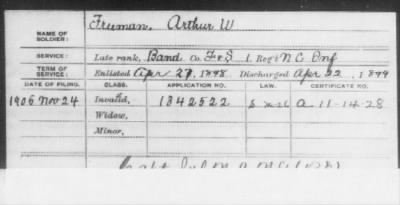 NAME OF SOLDIER: Freeman, Arthur W
SERVICE: Late rank, Band Co. F&S 1. Reg't N C Inf
TERM OF SERVICE: Enlisted Apr 27, 1898 Discharged Apr 22, 1899
DATE OF FILING. CLASS. APPLICATION NO. LAW. CERTIFICATE NO.
1906 Nov 24 Invalid, 1342522 a 11-14-28
Widow,
Minor,